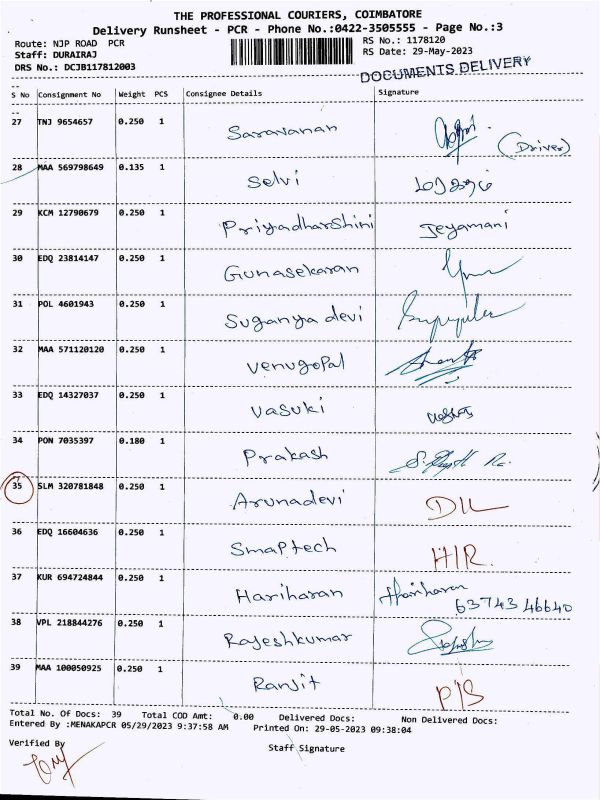 THE PROFESSIONAL COURIERS, COIMBATORE
Delivery Runsheet - PCR - Phone No.:0422-3505555 - Page No.:3
Route: NJP ROAD PCR
RS No.: 1178120
Staff: DURAIRAJ
RS Date: 29-May-2023
DRS No.: DCJB117812003
DOCUMENTS DELIVERY
S No Consignment No Weight PCS Consignee Details Signature
27 TNJ 9654657 0.250 1 Saravanan (Driver)
28 MAA 569798649 0.135 1 Selvi
29 KCM 12790679 0.250 1 Priyadharshini Jeyamani
30 EDQ 23814147 0.250 1 Gunasekaran
31 POL 4601943 0.250 1 Suganya devi
32 MAA 571120120 0.250 1 Venugopal
33 EDQ 14327037 0.250 1 Vasuki
34 PON 7035397 0.180 1 Prakash
35 SLM 320781848 0.250 1 Arunadevi D/L
36 EDQ 16604636 0.250 1 Smaptech H/R.
37 KUR 694724844 0.250 1 Hariharan Hariharan
6374346640
38 VPL 218844276 0.250 1 Rajeshkumar
39 MAA 100050925 0.250 1 Ranjit P/S
Total No. Of Docs: 39 Total COD Amt: 0.00 Delivered Docs: Non Delivered Docs:
Entered By :MENAKAPCR 05/29/2023 9:37:58 AM Printed On: 29-05-2023 09:38:04
Verified By
Staff Signature